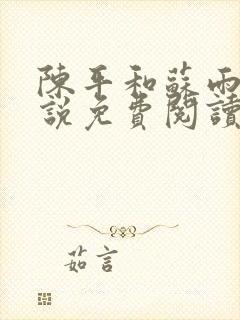 陳平和蘇雨
說免費閱讀
茹言